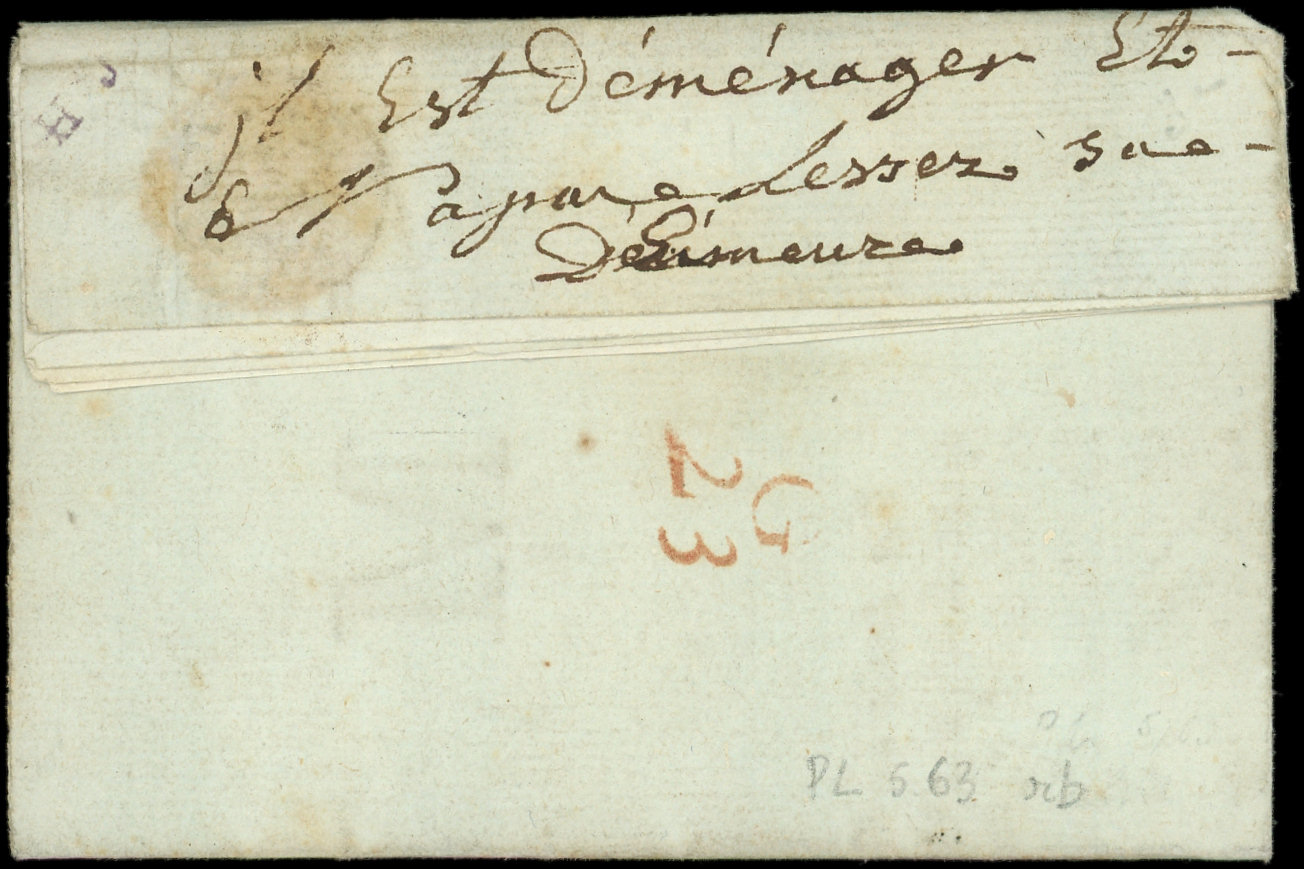 jl Est Déménager Et -
apar Lesser sa -
Démeure
G
23
PL 563 rb
H